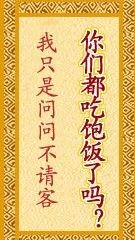 你们都吃饱饭了吗?
我只是问问不请客